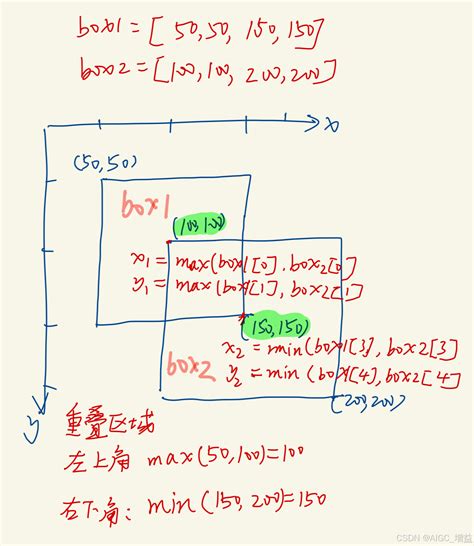 box1 = [50,50, 150,150]
box2 = [100,100, 200,200]
x
(50,50)
box1
(100,100)
x1 = max(box1[0].box2[0]
y1 = max(box1[1], box2[1]
(150,150)
x2 = min(box1[3], box2[3]
y2 = min (box1[4], box2[4]
box2
(200,200)
y
重叠区域
左上角 max(50,100)=100
右下角: min(150,200)=150
CSDN @AIGC_增益